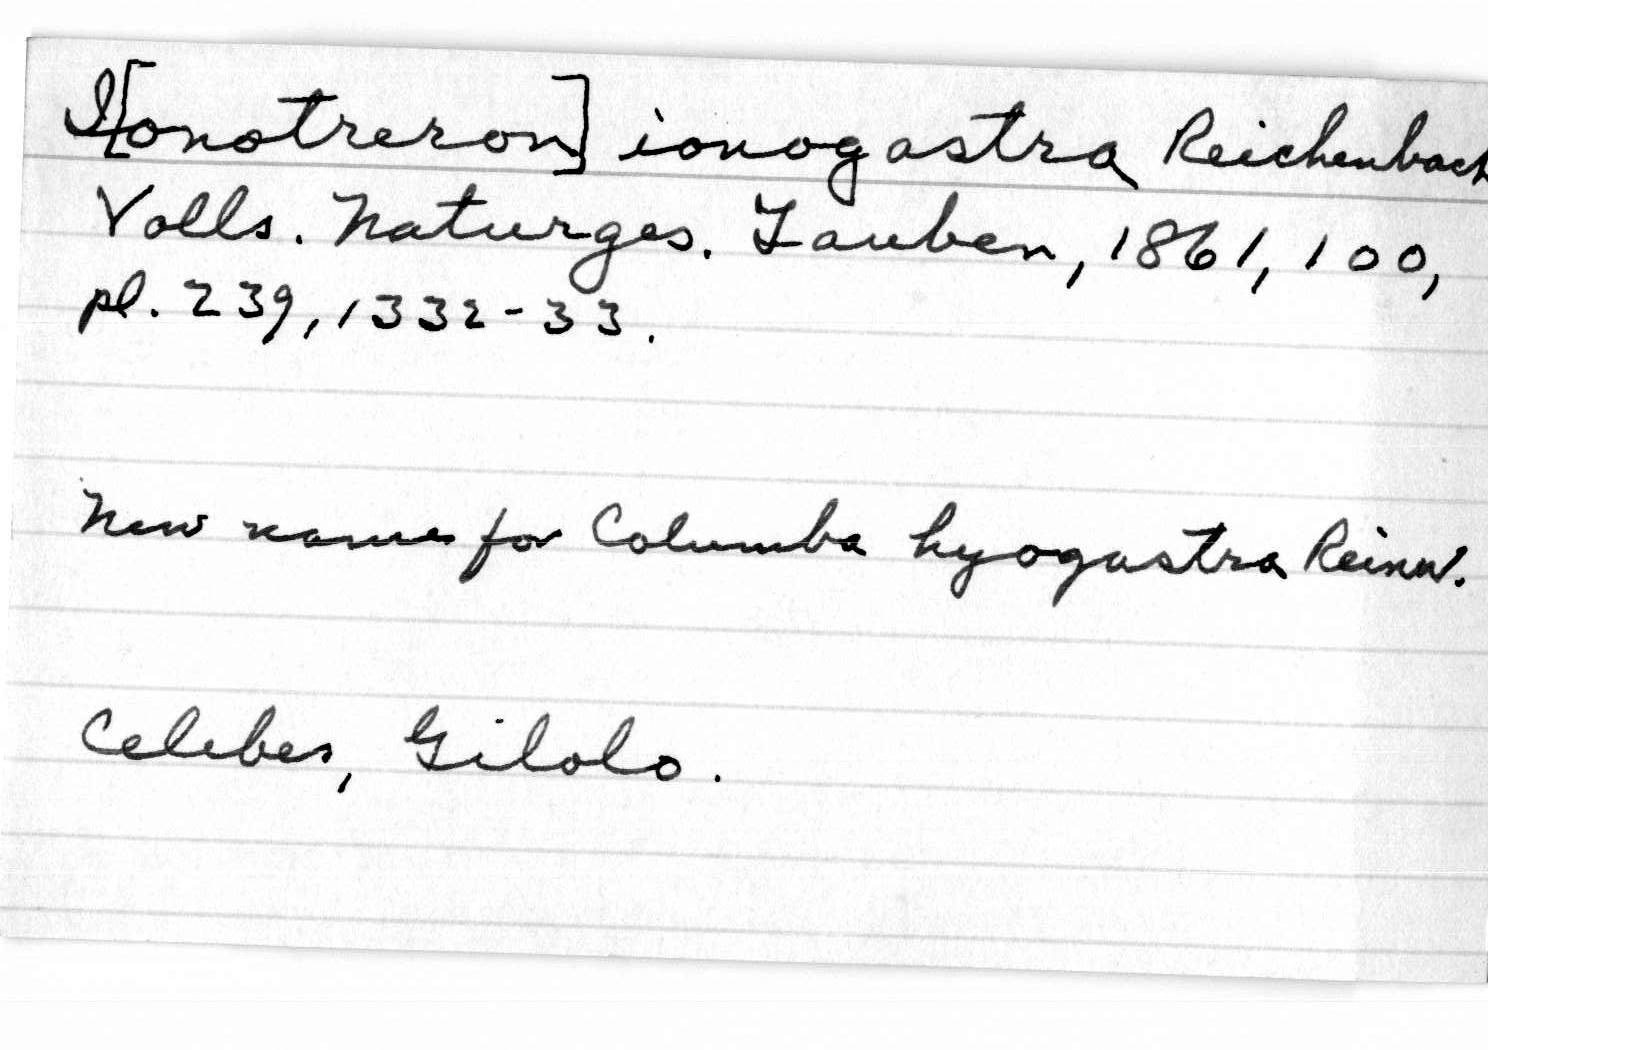 I[onotreron] ionogastra Reichenbach
Volls. Naturges. Tauben, 1861, 100,
pl. 239, 1332-33.
New name for Columba hyogastra Reinw.
Celebes, Gilolo.